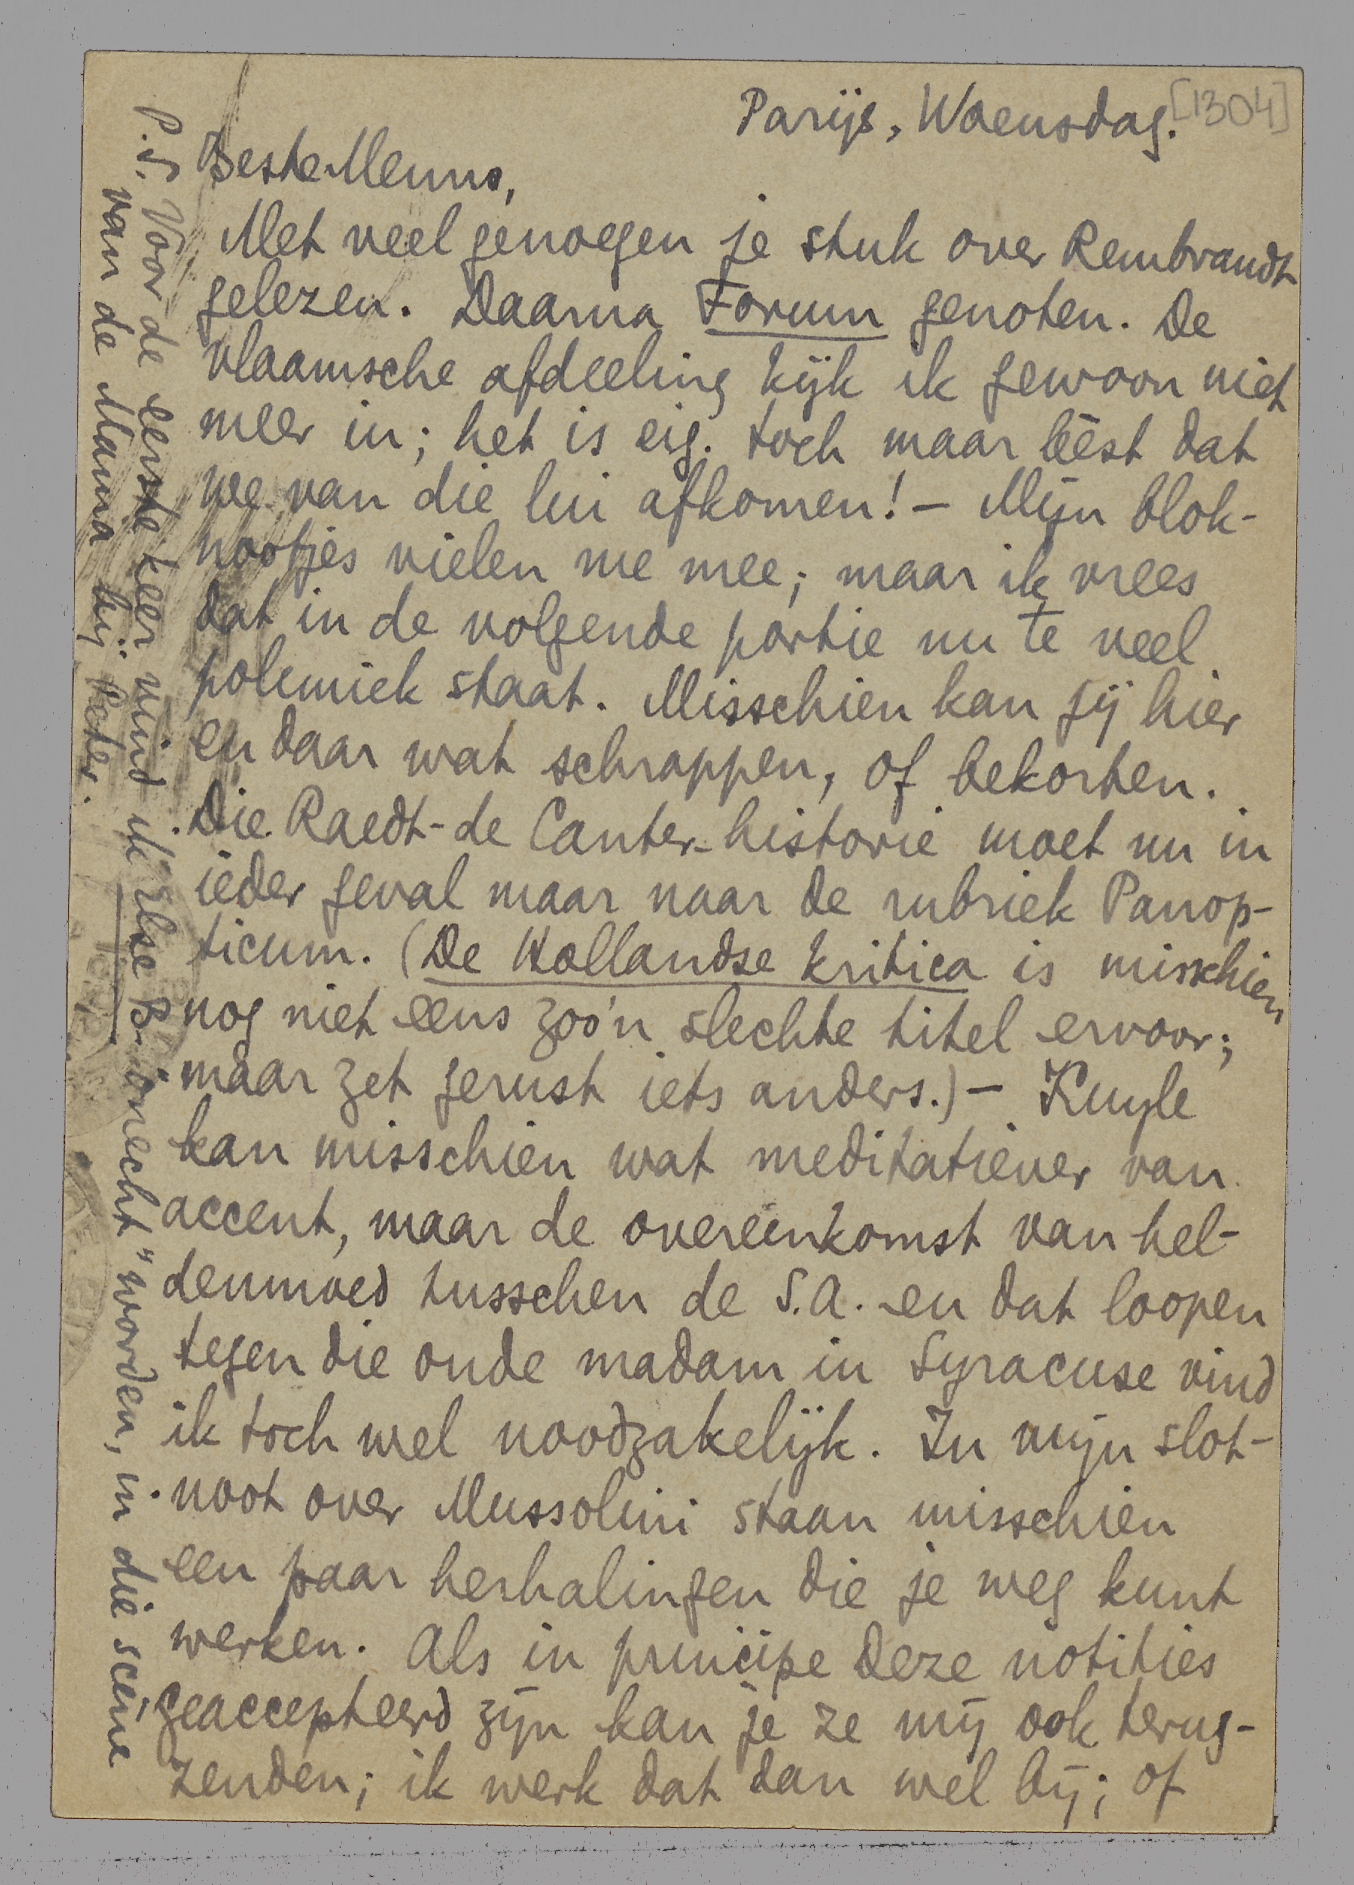 Parijs, Woensdag.
[1304]
Beste Menno,
Met veel genoegen je stuk over Rembrandt
gelezen. Daarna Forum genoten. De
vlaamsche afdeeling kijk ik gewoon niet
meer in; het is eig. toch maar bèst dat
we van die lui afkomen! – Mijn blok-
nootjes vielen me mee; maar ik vrees
dat in de volgende portie nu te veel
polemiek staat. Misschien kan jij hier
en daar wat schrappen, of bekorten.
Die Raedt-de Canter-historie moet nu in
ieder geval maar naar de rubriek Panop-
ticum. (De Hollandse kritica is misschien
nog niet eens zoo'n slechte titel ervoor;
maar zet gerust iets anders.) – Kuyle
kan misschien wat meditatiever van
accent, maar de overeenkomst van hel-
denmoed tusschen de S.A. en dat loopen
tegen die oude madam in Syracuse vind
ik toch wel noodzakelijk. In mijn slot-
noot over Mussolini staan misschien
een paar herhalingen die je weg kunt
werken. Als in principe deze notities
geaccepteerd zijn kan je ze mij ook terug-
zenden; ik werk dat dan wel bij; of
P.S. Voor de eerste keer vind ik Ilse B. „onecht" worden, in die scène
van de Mama bij Peter.